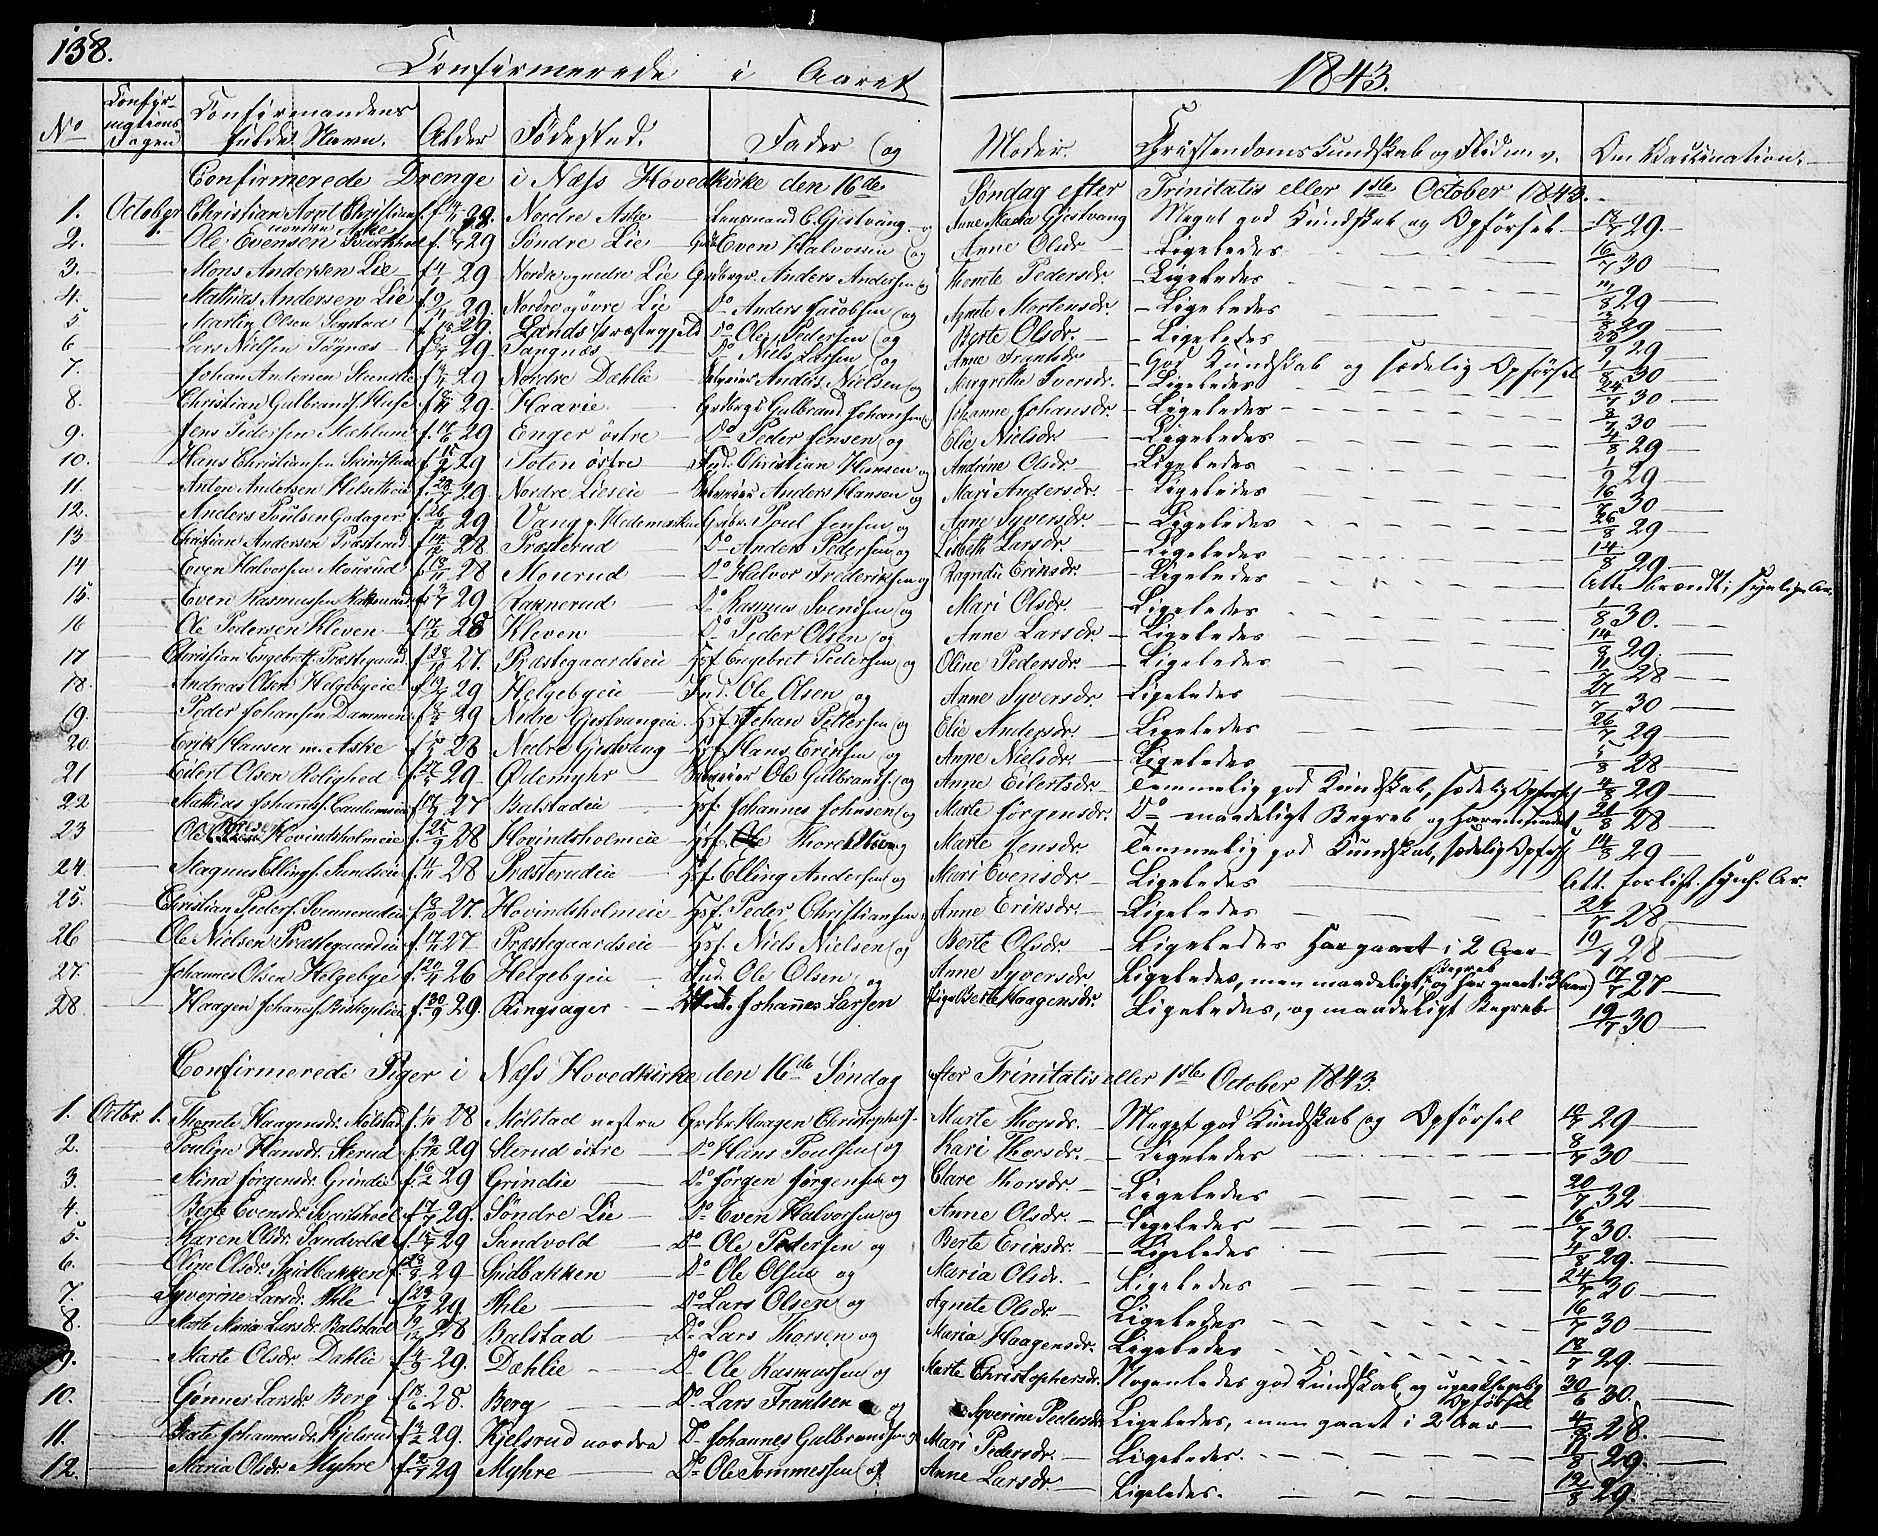 138.
Confirmerede i Aaret 1843.
No Confirmations Dagen Confirmandens fulde Navn. Alder Födested. Fader og Moder. Christendoms Kundskab og Flid m. v. Om Vaccination.
Confirmerede Drenge i Næss Hovedkirke den 16de Söndag efter Trinitatis eller 1ste October 1843.
1. October Christian Arnt Christians. nordre Aske Nordre Aske Lensmand C. Gjestvang og Anne Maria Gjestvang Meget god Kundskab og Opförsel 29.
2. Ole Evensen 29 Söndre Lie Even Halvorsen og Anne Olsdr. Ligeledes 16/7 30
3. Mons Andersen Lie 29 Nordre og nedre Lie Grdbrgr. Anders Andersen og Pedersdr. Ligeledes 29
4. Mathias Andersen Lie 29. Nordre og övre Lie Do Anders Jacobsen og Agnete Mortensdr. Ligeledes 29
5 Martin Olsen 29. Lands Præstegjeld Do Ole Pedersen og Berte Olsdr. Ligeledes 29
6 Lars Nielsen 29 Do Niels Larsen og Anne Frantsdr. God Kundskab og sædelig Opförsel 30
7. Johan Andersen 29 Nordre Dæhlie Anders Nielsen og Margrethe Iversdr. Ligeledes 24/7 30
8. Christian Gulbrands. 29. Haavie Grdbrgr Gulbrand Johansen og Johanne Johansdr. Ligeledes 30
9. Jens Pedersen Mæhlum 29 Enger östre Do Peder Jensen og Elie Nielsdr. Ligeledes 29
10. Hans Christiansen 29 Toten östre Ind. Christian Hansen og Andrine Olsdr. Ligeledes 29
11. Anton Andersen 29. Nordre Lieseie Anders Hansen og Mari Andersdr. Ligeledes 16/7 30
12. Anders Poulsen Godager f. 26/7 29 Vang p. Hedemarken Grdbr. Poul Jensen og Anne Syversdr. Ligeledes 26/8 29
13 Christian Andersen Præsterud 28 Præsterud Do Anders Pedersen og Lisbeth Larsdr. Ligeledes 14/8 29.
14 Even Halvorsen Mourud 28 Mourud Do Halvor Frederiksen og Ragndi Eriksdr. Ligeledes Atte. brændt; synlige Ar.
15. Even Rasmussen Raknerud 29 Raknerud Do Rasmus Svendsen og Mari Olsdr. Ligeledes 1/8 30.
16 Ole Pedersen Kleven 28 Kleven Do Peder Olsen og Anne Larsdr. Ligeledes 14/8 29.
17 Christian Engebrets. Præstegaard 27. Præstegaardseie Hsf. Engebret Pedersen og Oline Pedersdr. Ligeledes 28
18. Andreas Olsen Helgebyeie 29 Helgebyeie Ind. Ole Olsen og Anne Syversdr. Ligeledes 27/7 30
19. Peder Johansen Dammen 29 Nedre Gjestvangeie Hsf. Johan Pettersen og Elie Andersdr. Ligeledes 26/7 29
20. Erik Hansen n. Aske 28 Nedre Gjestvang Hsf. Hans Eriksen og Anne Nielsdr. Ligeledes 5/8 28
21 Eilert Olsen Rolighed 29 Ödemyhr Ole Gulbrands. og Anne Eilertsdr. Temmelig god Kundskab, sædelig Opförsel 4/8 29
22 Mathias Johanns. 27 Balstadeie Hsf. Johannes Johnsen og Marte Jörgensdr. Do maadeligt Begreb og 28
23 Ole Thoresen Hovindsholmeie 28 Hovindsholmeie Hsf. Thore Olsen og Marte Jensdr. Temmelig god Kundskab, sædelig Opförs. 14/8 29
24. Magnus Ellings. Sundseie 28 Præsterudeie Hsf. Elling Andersen og Mari Evensdr. Ligeledes Att. forlist. synl. Ar.
25. Christian Peders. 27. Hovindsholmeie Hsf. Peder Christiansen Anne Eriksdr. Ligeledes 28
26 Ole Nielsen Præstegaardeie 27. Præstegaardseie Hsf. Niels Nielsen og Berte Olsdr. Ligeledes Har gaaet i 2 Aar 19/7 28
27. Johannes Olsen Helgebye 26 Helgebyeie Ind. Ole Olsen og Anne Syversdr. Ligeledes, men maadeligt Begreb og har gaaet i 17/7 27
28 Haagen Johans. f. 30/9 29. Ringsager Johannes Larsen Pige Berte Haagensdr. Ligeledes, og maadeligt Begreb 19/7 30
Confirmerede Piger i Næss Hovedkirke den 16de Söndag efter Trinitatis eller 1ste October 1843.
1. Octbr. 1. Haagensdr. Mölstad 28 Mölstad vestre Grdbr. Haagen Christophers. Marte Thorsdr. Meget god Kundskab og Opförsel 29
2. Pouline Hansdr. Sterud 29 Sterud östre Do Hans Poulsen og Kari Thorsdr. Ligeledes 8/7 30
3. Mina Jörgensdr. Grindie 29 Grindie Do Jörgen Jörgensen og Clare Thorsdr. Ligeledes 20/7 32
4. Berte Evensdr. 29. Söndre Lie Do Even Halvorsen og Anne Olsdr. Ligeledes 16/7 30.
5. Karen Olsdr. Sandvold 29 Sandvold Do Ole Pedersen og Berte Eriksdr. Ligeledes 4/8 29.
6. Oline Olsdr. Spidbakken 29 Spidbakken Do Ole Olsen og Maria Olsdr. Ligeledes 24/7 30
7. Syverine Larsdr. Ihle 29 Ihle Do Lars Olsen og Agnete Olsdr. Ligeledes 16/7 30
8. Marte Maria Larsdr. Balstad 28 Balstad Do Lars Thorsen og Maria Haagensdr. Ligeledes 18/7 29.
9. Marte Olsdr. Dæhlie 29. Dæhlie Do Ole Rasmussen og Marte Christophersdr. Nogenledes god Kundskab og upaaklagelig Opförsel 30/6 30.
10. Gönner Larsdr. Berg 28. Berg Do Lars Frantsen og Syverine Pedersdr. Ligeledes, men gaaet i 2 Aar 4/8 28.
11. Johannesdr. Kjelsrud 29. Kjelsrud nordre Do Johannes Gulbrandsen Mari Pedersdr. Ligeledes 29.
12. Maria Olsdr. Myhre 29 Myhre Do Ole Tommessen og Anne Larsdr. Ligeledes. 12/8 29.